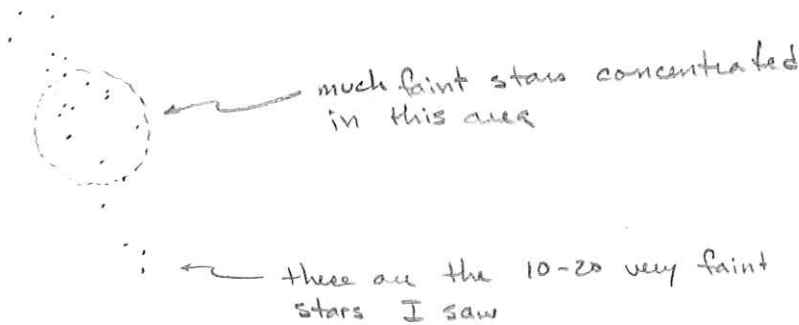 much faint stars concentrated
in this area
these are the 10-20 very faint
stars I saw